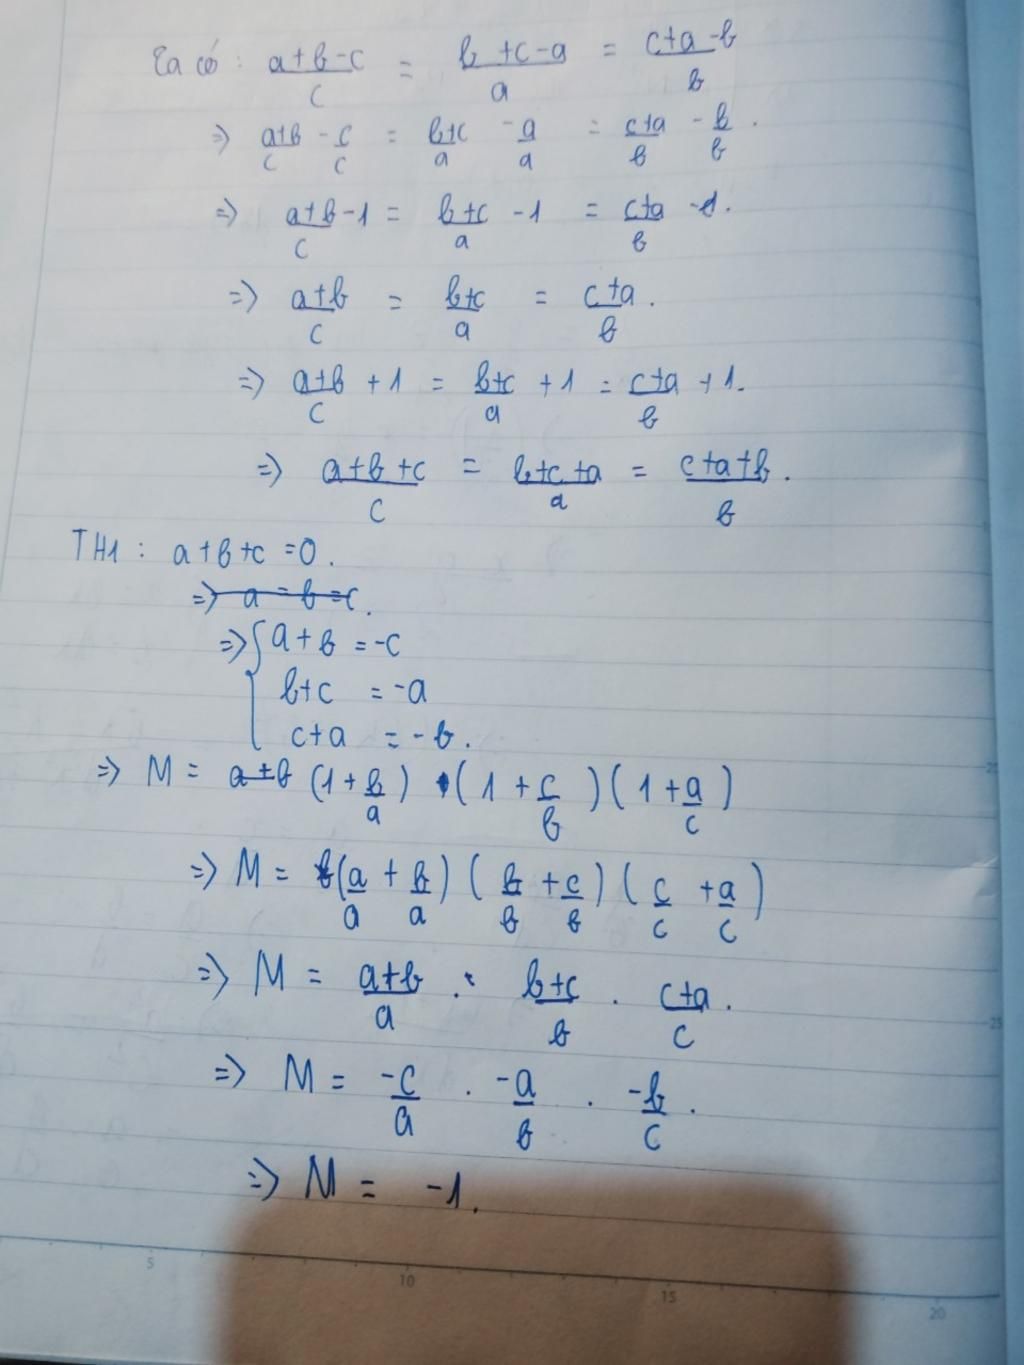 Ta có : (a+b-c)/c = (b+c-a)/a = (c+a-b)/b
=> (a+b)/c - c/c = (b+c)/a - a/a = (c+a)/b - b/b .
=> (a+b)/c - 1 = (b+c)/a - 1 = (c+a)/b - 1.
=> (a+b)/c = (b+c)/a = (c+a)/b .
=> (a+b)/c + 1 = (b+c)/a + 1 = (c+a)/b + 1.
=> (a+b+c)/c = (b+c+a)/a = (c+a+b)/b .
TH1 : a+b+c =0 .
=> a = b = c.
=> { a+b = -c
b+c = -a
c+a = -b .
=> M = a+b (1 + b/a) . (1 + c/b)(1 + a/c)
=> M = (a/a + b/a)(b/b + c/b)(c/c + a/c)
=> M = (a+b)/a . (b+c)/b . (c+a)/c .
=> M = -c/a . -a/b . -b/c .
=> M = -1.
5
10
15
20
25